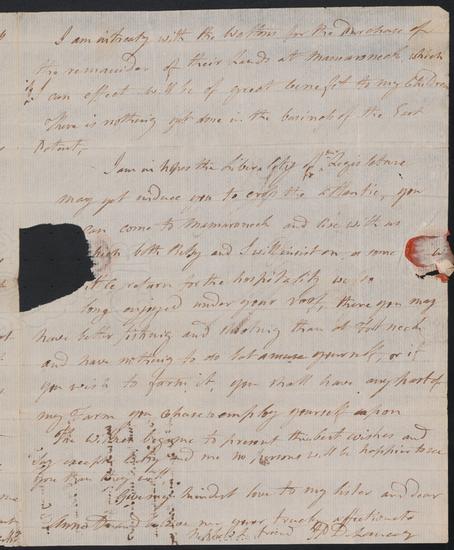 I am in treaty with the Wattons for the Purchase of
the remainder of their Lands at Mamaroneck which
if I can effect will be of great benefit to my Children
There is nothing yet done in the business of the East
Patent,
I am in hopes the Liberality of the Legislature
may yet induce you to cross the Atlantic, you
can come to Mamaroneck and live with us
which both Betsy and I will insist on, as some
little return for the hospitality we so
long enjoyed under your roof, there you may
have better fishing and shooting than at
and have nothing to do but amuse yourself, or if
you wish to farm it, you shall have any part of
my Farm you choose to employ yourself upon
The beg me to present their best wishes and
say except Betsy and me no persons will be happier to see
you than they will
Give my kindest love to my sister and dear
Anna and believe me your truly affectionate
friend